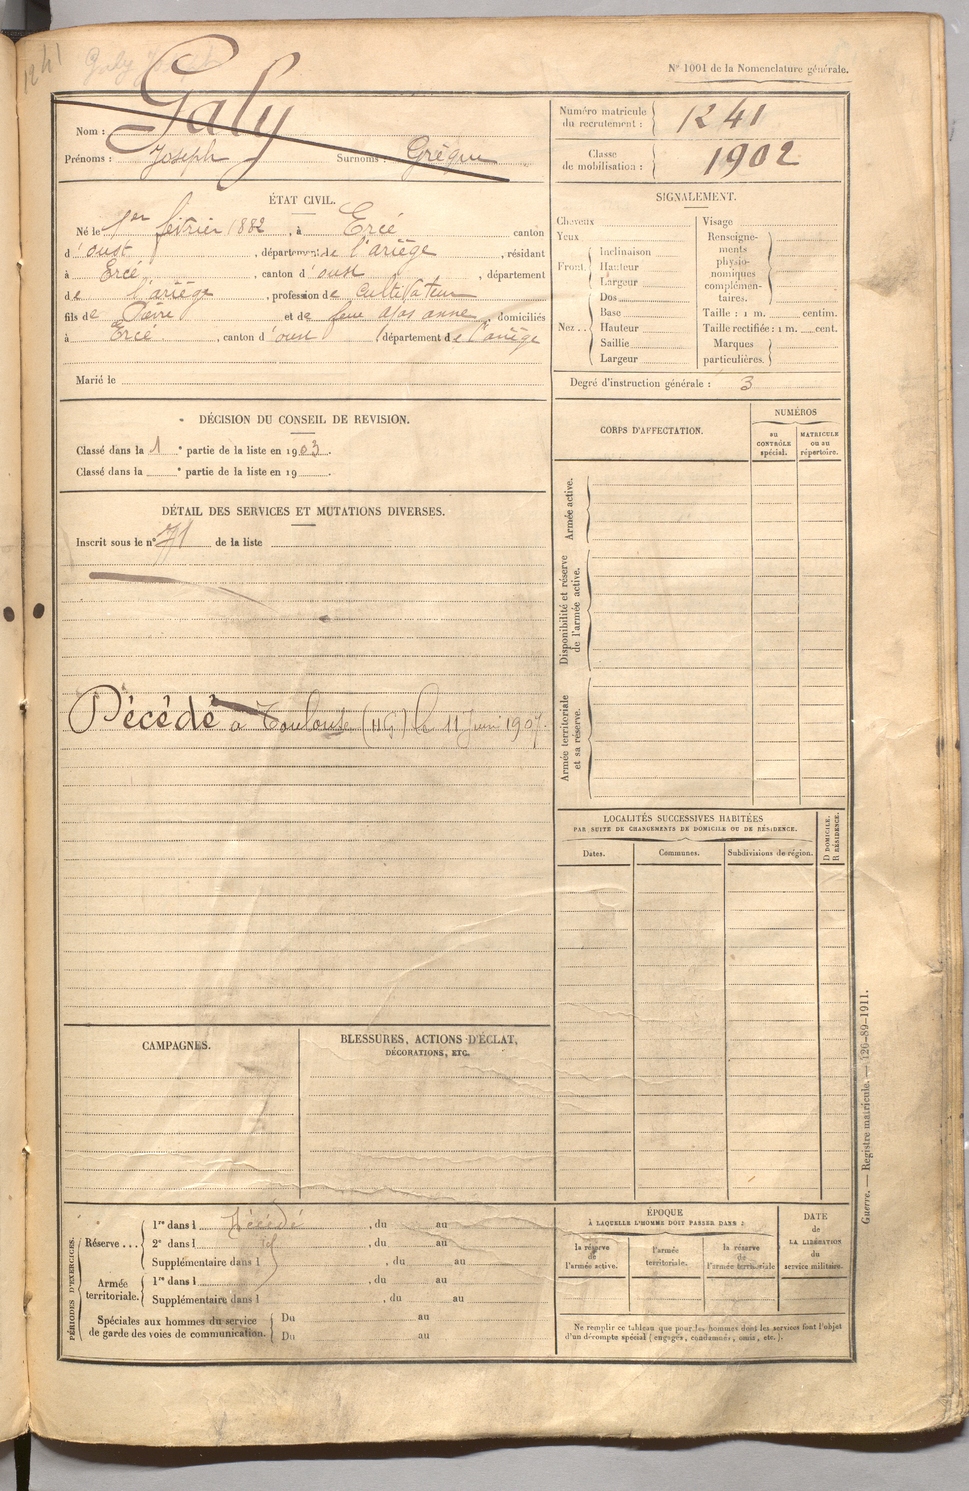 1241
Galy Joseph
N° 1001 de la Nomenclature générale.
Nom : Galy
Prénoms : Joseph Surnoms :
Numéro matricule du recrutement : 1241
Classe de mobilisation : 1902
ÉTAT CIVIL.
Né le 1er février 1882, à Ercé canton
d'oust, département de l'ariège, résidant
à Ercé, canton d'oust, département
de l'ariège, profession de cultivateur
fils de et de feue anne, domiciliés
à Ercé, canton d'oust département de l'ariège
Marié le
SIGNALEMENT.
Cheveux
Yeux
Front. Inclinaison
Hauteur
Largeur
Nez.. Dos
Base
Hauteur
Saillie
Largeur
Visage
Renseigne-
ments
physio-
nomiques
complémen-
taires.
Taille : 1 m. centim.
Taille rectifiée : 1 m. cent.
Marques
particulières.
Degré d'instruction générale : 3
DÉCISION DU CONSEIL DE REVISION.
Classé dans la 1e partie de la liste en 1903.
Classé dans la e partie de la liste en 19 .
CORPS D'AFFECTATION.
NUMÉROS
au CONTRÔLE spécial.
MATRICULE ou au répertoire.
Armée active.
Disponibilité et réserve de l'armée active.
Armée territoriale et sa réserve.
DÉTAIL DES SERVICES ET MUTATIONS DIVERSES.
Inscrit sous le n° 71 de la liste
Décédé à Toulouse (HG) le 11 Juin 1907.
LOCALITÉS SUCCESSIVES HABITÉES
PAR SUITE DE CHANGEMENTS DE DOMICILE OU DE RÉSIDENCE.
Dates. Communes. Subdivisions de région. D DOMICILE. R RÉSIDENCE.
CAMPAGNES.
BLESSURES, ACTIONS D'ÉCLAT,
DÉCORATIONS, ETC.
PÉRIODES D'EXERCICES.
Réserve... 1re dans l Décédé, du au
2e dans l , du au
Supplémentaire dans l , du au
Armée territoriale. 1re dans l , du au
Supplémentaire dans l , du au
Spéciales aux hommes du service de garde des voies de communication. Du au
Du au
ÉPOQUE
À LAQUELLE L'HOMME DOIT PASSER DANS :
la réserve de l'armée active.
l'armée territoriale.
la réserve de l'armée territoriale
DATE
de
LA LIBÉRATION
du
service militaire.
Ne remplir ce tableau que pour les hommes dont les services font l'objet
d'un décompte spécial (engagés, condamnés, omis, etc.).
Guerre. — Registre matricule. — 120-89-1911.